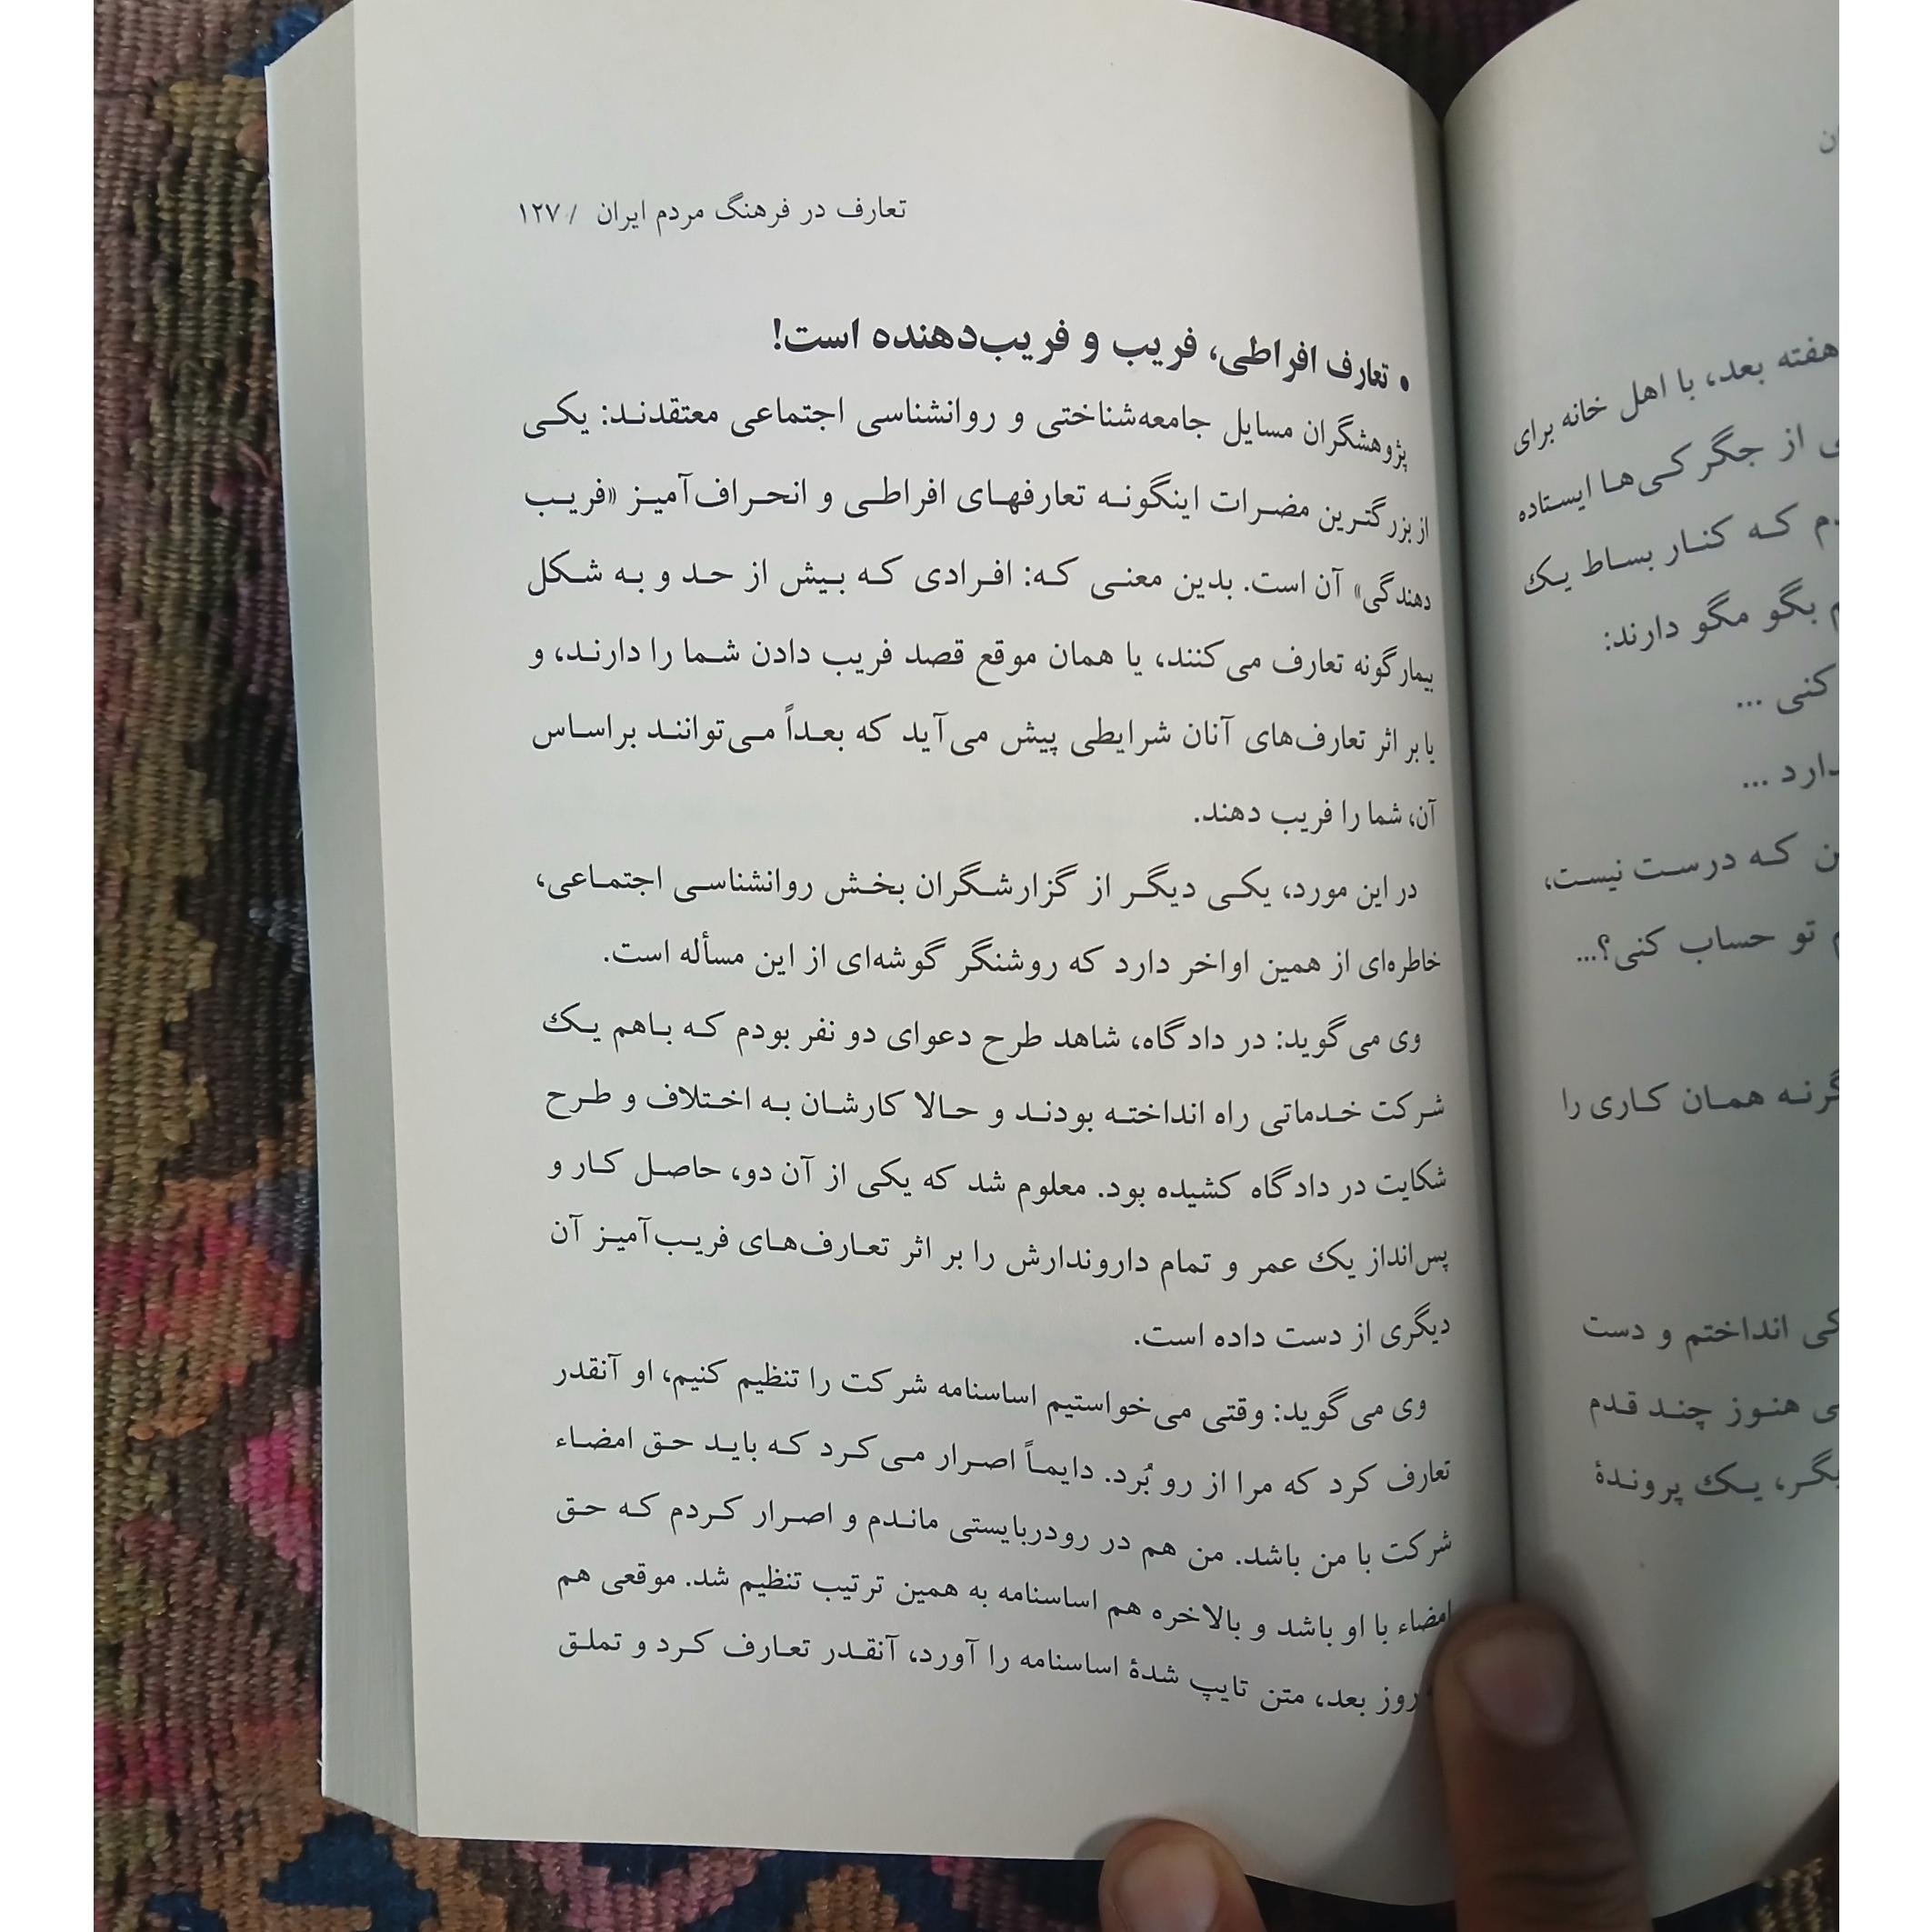 تعارف در فرهنگ مردم ایران / ۱۲۷
• تعارف افراطی، فریب و فریب‌دهنده است!
پژوهشگران مسایل جامعه‌شناختی و روانشناسی اجتماعی معتقدند: یکی
از بزرگترین مضرات اینگونه تعارفهای افراطی و انحراف‌آمیز «فریب
دهندگی» آن است. بدین معنی که: افرادی که بیش از حد و به شکل
بیمارگونه تعارف می‌کنند، یا همان موقع قصد فریب دادن شما را دارند، و
یا بر اثر تعارف‌های آنان شرایطی پیش می‌آید که بعداً می‌توانند براساس
آن، شما را فریب دهند.
در این مورد، یکی دیگر از گزارشگران بخش روانشناسی اجتماعی،
خاطره‌ای از همین اواخر دارد که روشنگر گوشه‌ای از این مسأله است.
وی می‌گوید: در دادگاه، شاهد طرح دعوای دو نفر بودم که باهم یک
شرکت خدماتی راه انداخته بودند و حالا کارشان به اختلاف و طرح
شکایت در دادگاه کشیده بود. معلوم شد که یکی از آن دو، حاصل کار و
پس‌انداز یک عمر و تمام داروندارش را بر اثر تعارف‌های فریب‌آمیز آن
دیگری از دست داده است.
وی می‌گوید: وقتی می‌خواستیم اساسنامه شرکت را تنظیم کنیم، او آنقدر
تعارف کرد که مرا از رو بُرد. دایماً اصرار می‌کرد که باید حق امضاء
شرکت با من باشد. من هم در رودربایستی ماندم و اصرار کردم که حق
امضاء با او باشد و بالاخره هم اساسنامه به همین ترتیب تنظیم شد. موقعی هم
روز بعد، متن تایپ شدهٔ اساسنامه را آورد، آنقدر تعارف کرد و تملق
هفته بعد، با اهل خانه برای
از جگرکی‌ها ایستاده
که کنار بساط یک
بگو مگو دارند:
کنی ...
...
که درست نیست،
تو حساب کنی؟...
همان کاری را
انداختم و دست
هنوز چند قدم
یک پروندهٔ